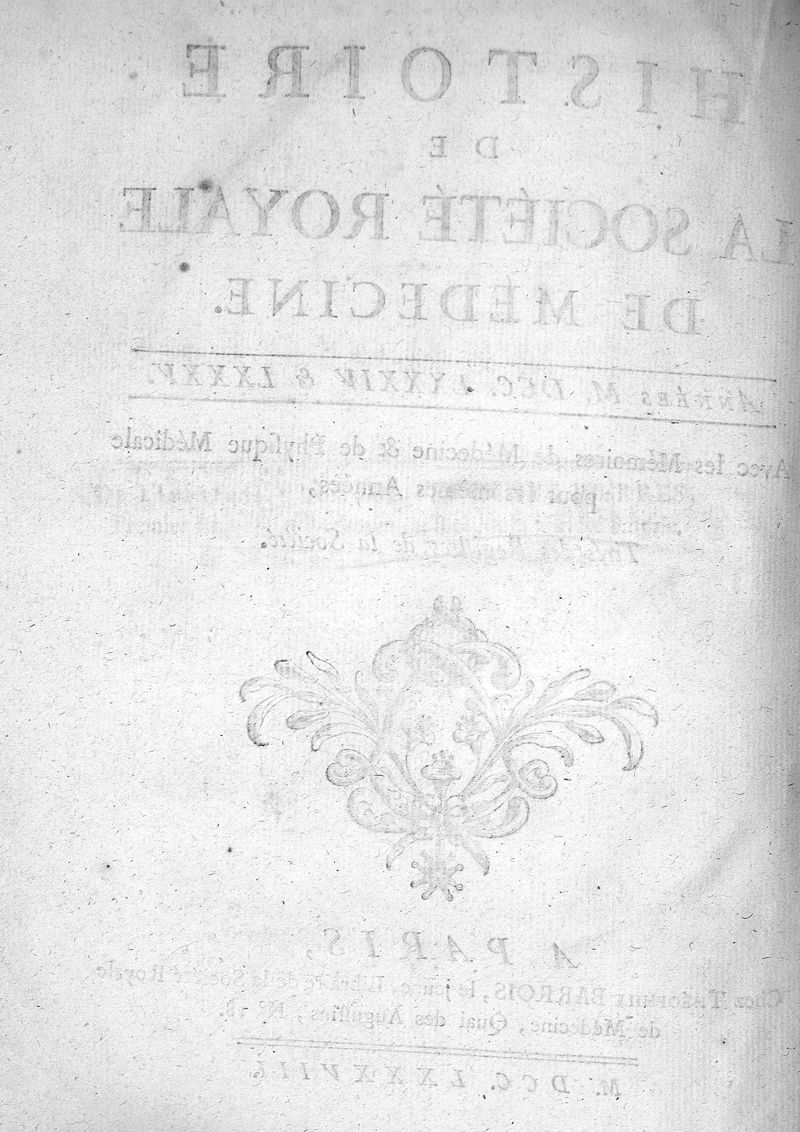 HISTOIRE
DE
LA SOCIÉTÉ ROYALE
DE MÉDECINE.
ANNÉES M. DCC. LXXXIV & LXXXV.
Avec les Mémoires de Médecine & de Phyſique Médicale
pour les mêmes Années,
Tirés des Regiſtres de la Société.
A PARIS,
Chez THÉOPHILE BARROIS, le jeune, Libraire de la Société Royale
de Médecine, Quai des Auguſtins, N° 18.
M. DCC. LXXXVIII.